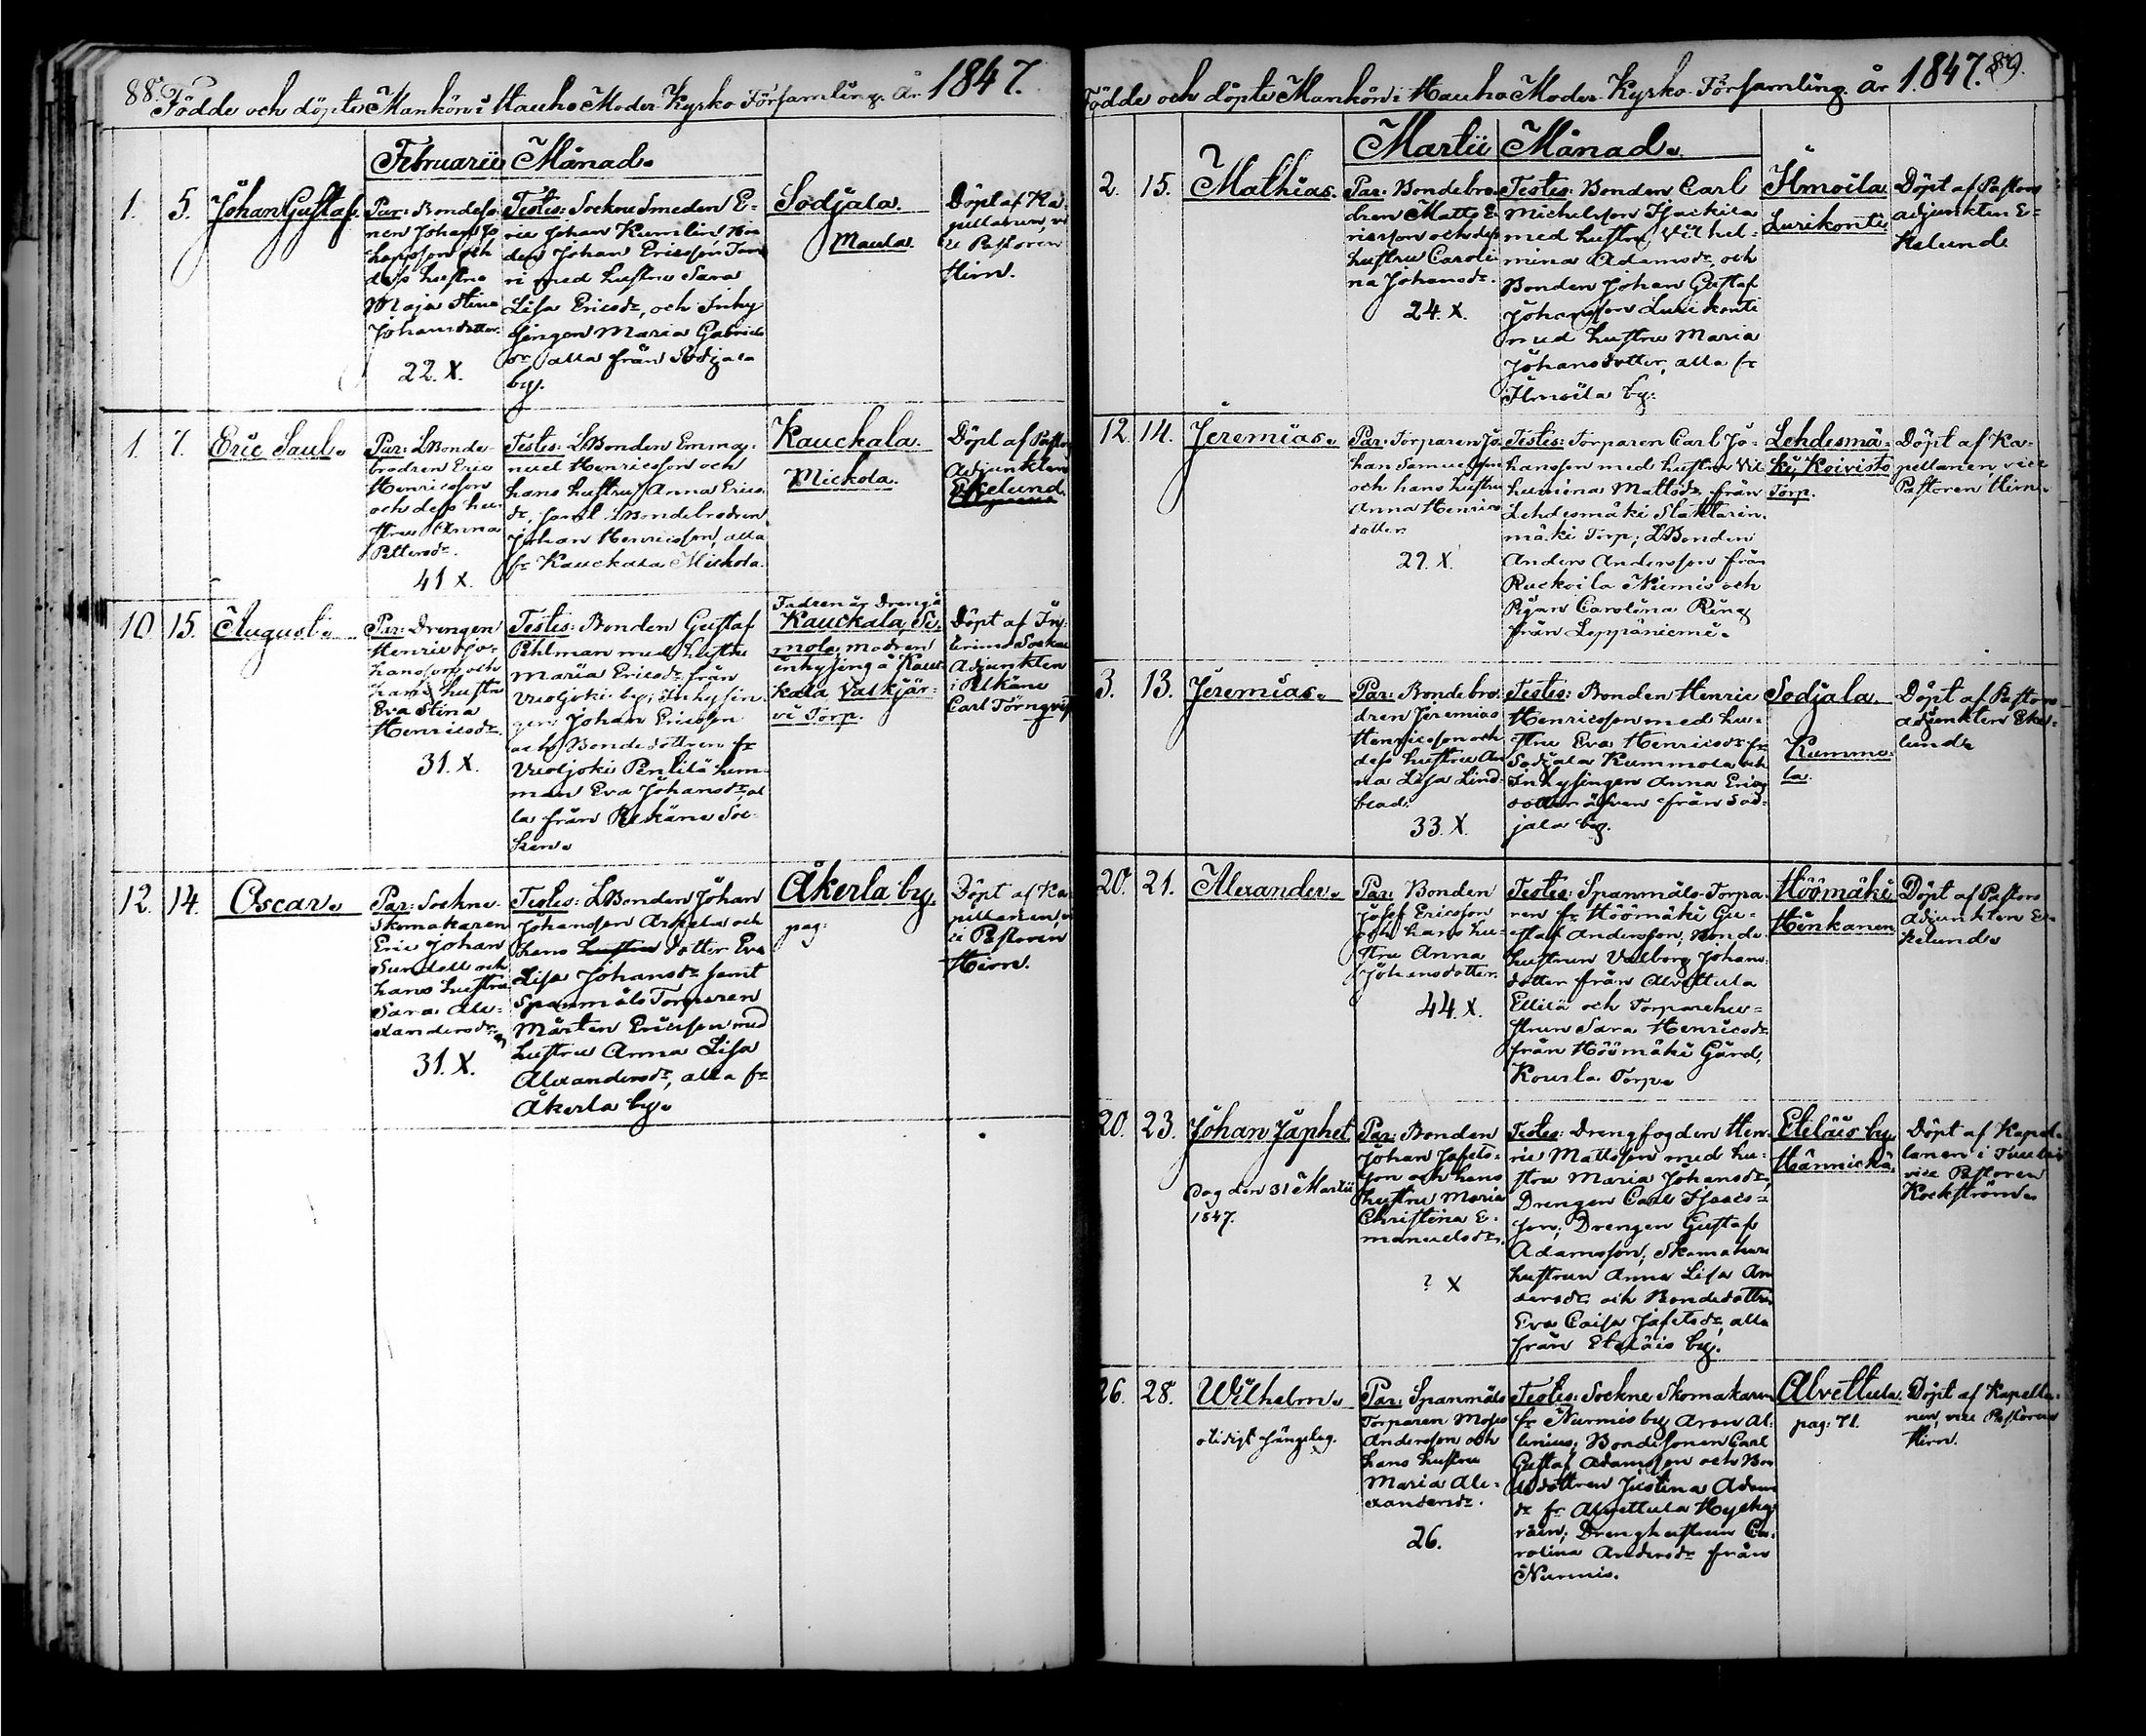 88.
Födde och döpte Mankön i Hauho Moder Kyrko Församling År 1847.
Februarii Månad.
1. 5. Johan Gustaf.
Par: Bondeso-
nen Johan Jo
hansson och
dess hustru
Maja Stina
Johansdotter.
22. X.
Testes: Socken Smeden E-
ric Johan Kumlin Bon
den Johan Ericsson
med hustru Sara
Lisa Ericsdr, och Inhy
singen Maria Gabriels
dr, alla från Sodjala
by.
Sodjala.
Maula.
Döpt af Ka-
pellanen, vi
ce Pastoren
Hirn.
1. 7. Eric Saul.
Par: LBonde-
brodren Eric
Henricsson
och dess hu-
stru Anna
Pettersdr.
41 X.
Testes: LBonden Emma-
nuel Henricsson och
hans hustru Anna Erics
dr, samt LBondebrodren
Johan Henricsson, alla
fr Kauckala Mickola.
Kauckala.
Mickola.
Döpt af Pastors
Adjunkten
Ekelund.
10. 15. August.
Par: Drengen
Henric Jo-
hansson och
hans hustru
Eva Stina
Henricsdr.
31. X.
Testes: Bonden Gustaf
Pihlman med hustru
Maria Ericsdr från
Vuoljoki by; Inhysin-
gen Johan Ericsson
och Bondedottren fr
Vuoljoki Penttilä hem-
man Eva Johansdr, al
la från Pelkäne Soc-
ken.
Fadren är Dreng å
Kauckala, Si-
mola, modren
inhysing å Kauc-
kala Valkjär-
vi Torp.
Döpt af
Sockne
Adjunkten
i Pelkäne
Carl Törnqvist
12. 14. Oscar.
Par: Sockne-
Skomakaren
Eric Johan
Sundell och
hans hustru
Sara Ale-
xandersdr.
31. X.
Testes: LBonden Johan
Johansson Arkela och
hans hustru dotter Eva
Lisa Johansdr samt
Spanmåls Torparen
Mårten Ericsson med
hustru Anna Lisa
Alexandersdr, alla fr
Åkerla by.
Åkerla by.
pag:
Döpt af Ka-
pellanen, vi
ce Pastoren
Hirn.
89.
Födde och döpte Mankön i Hauho Moder Kyrko Församling år 1847.
Martii Månad.
2. 15. Mathias.
Par: Bondebro-
dren Matts E-
ricsson och dess
hustru Caroli-
na Johansdr.
24. X.
Testes: Bonden Carl
Michelsson Isackila
med hustru Vilhel-
mina Adamsdr, och
Bonden Johan Gustaf
Johansson Lurikonti
med hustru Maria
Johansdotter, alla fr
Ilmoila by.
Ilmoila
Lurikonti
Döpt af Pastors
adjunkten E-
kelund
12. 14. Jeremias.
Par: Torparen Jo
han Samuelsson
och hans hustru
Anna Henrics
dotter.
Testes: Torparen Carl Jo-
hansson med hustru Vil
helmina Mattsdr från
Lehdesmäki
mäki Torp; LBonden
Anders Andersson från
Ruckoila Niemis och
Pigan Carolina Ring
från Leppäniemi.
Lehdesmä-
ki, Koivisto
Torp.
Döpt af Ka-
pellanen vice
Pastoren Hirn.
3. 13. Jeremias.
Par: Bondebro-
dren Jeremias
Henricsson och
dess hustru An
na Lisa Lind-
blad.
33. X.
Testes: Bonden Henric
Henricsson med hu-
stru Eva Henricsdr fr
Sodjala Kummola och
Inhysingen Anna Erics
dotter äfven från Sod-
jala by.
Sodjala
Kummo-
la.
Döpt af Pastors
adjunkten Eke-
lund
20. 21. Alexander.
Par: Bonden
Josef Ericsson
och hans hu-
stru Anna
Johansdotter.
44. X.
Testes: Spanmåls-Torpa-
ren fr Höömäki Gu-
staf Andersson; Bonde-
hustrun Valborg Johans-
dotter från Alvettula
Ellilä och Torparehu-
strun Sara Henricsdr
från Höömäki Gård,
Kourla Torp.
Höömäki
Hinkanen
Döpt af Pastors
Adjunkten E-
kelund.
20. 23. Johan Japhet
Dog den 31 Martii
1847.
Par: Bonden
Johan Jafets-
son och hans
hustru Maria
Christina E-
manuelsdr.
? X
Testes: Drengfogden Hen-
ric Mattsson med hu-
stru Maria Johansdr,
Drengen Carl Isaacs-
son; Drengen Gustaf
Adamsson; Skomakare
hustrun Anna Lisa An
dersdr och Bondedottren
Eva Caisa Jafetsdr, alla
från Eteläis by.
Eteläis by
Hännickä
Döpt af Kapel-
lanen i Tuulois
vice Pastoren
Kockström.
26. 28. Wilhelm.
Par: Spanmåls
Torparen Moses
Andersson och
hans hustru
Maria Ale-
xandersdr.
26.
Testes: Sockne Skomakaren
fr Nurmis by Aron Al-
lenius; Bondesonen Carl
Gustaf Adamsson och Bon
dedottren Justina Adams
dr fr Alvettula
Drenghustrun Ca-
rolina Andersdr från
Nurmis.
Alvettula.
pag: 71.
Döpt af Kapella-
nen, vice Pastoren
Hirn.